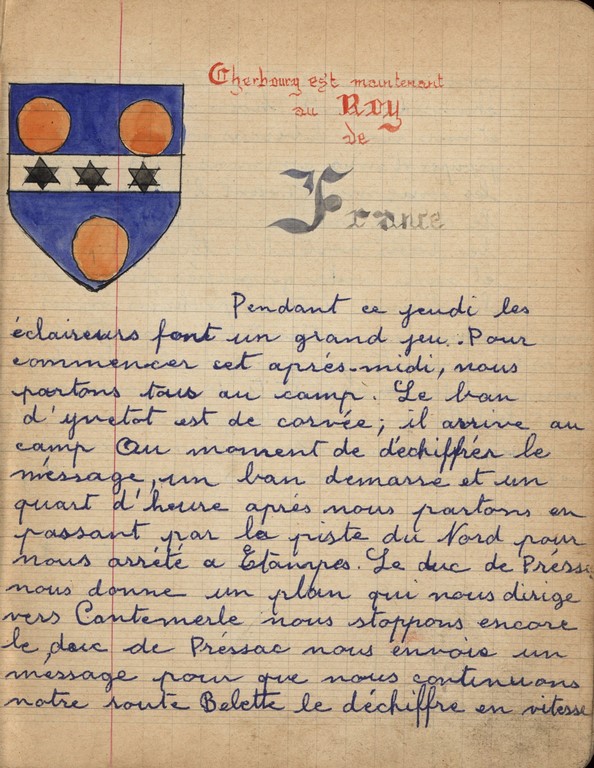 Cherbourg est maintenant
au Roy
de
France
Pendant ce jeudi les
éclaireurs font un grand jeu. Pour
commencer cet après-midi, nous
partons tous au camp. Le ban
d'yvetot est de corvée; il arrive au
camp Au moment de déchiffrér le
méssage, un ban demarre et un
quart d'heure aprés nous partons en
passant par la piste du Nord pour
nous arrété a Étampes. Le duc de Préssa
nous donne un plan qui nous dirige
vers Cantemerle nous stoppons encore
le duc de Préssac nous envoie un
méssage pour que nous continuons
notre route Belette le déchiffre en vitesse